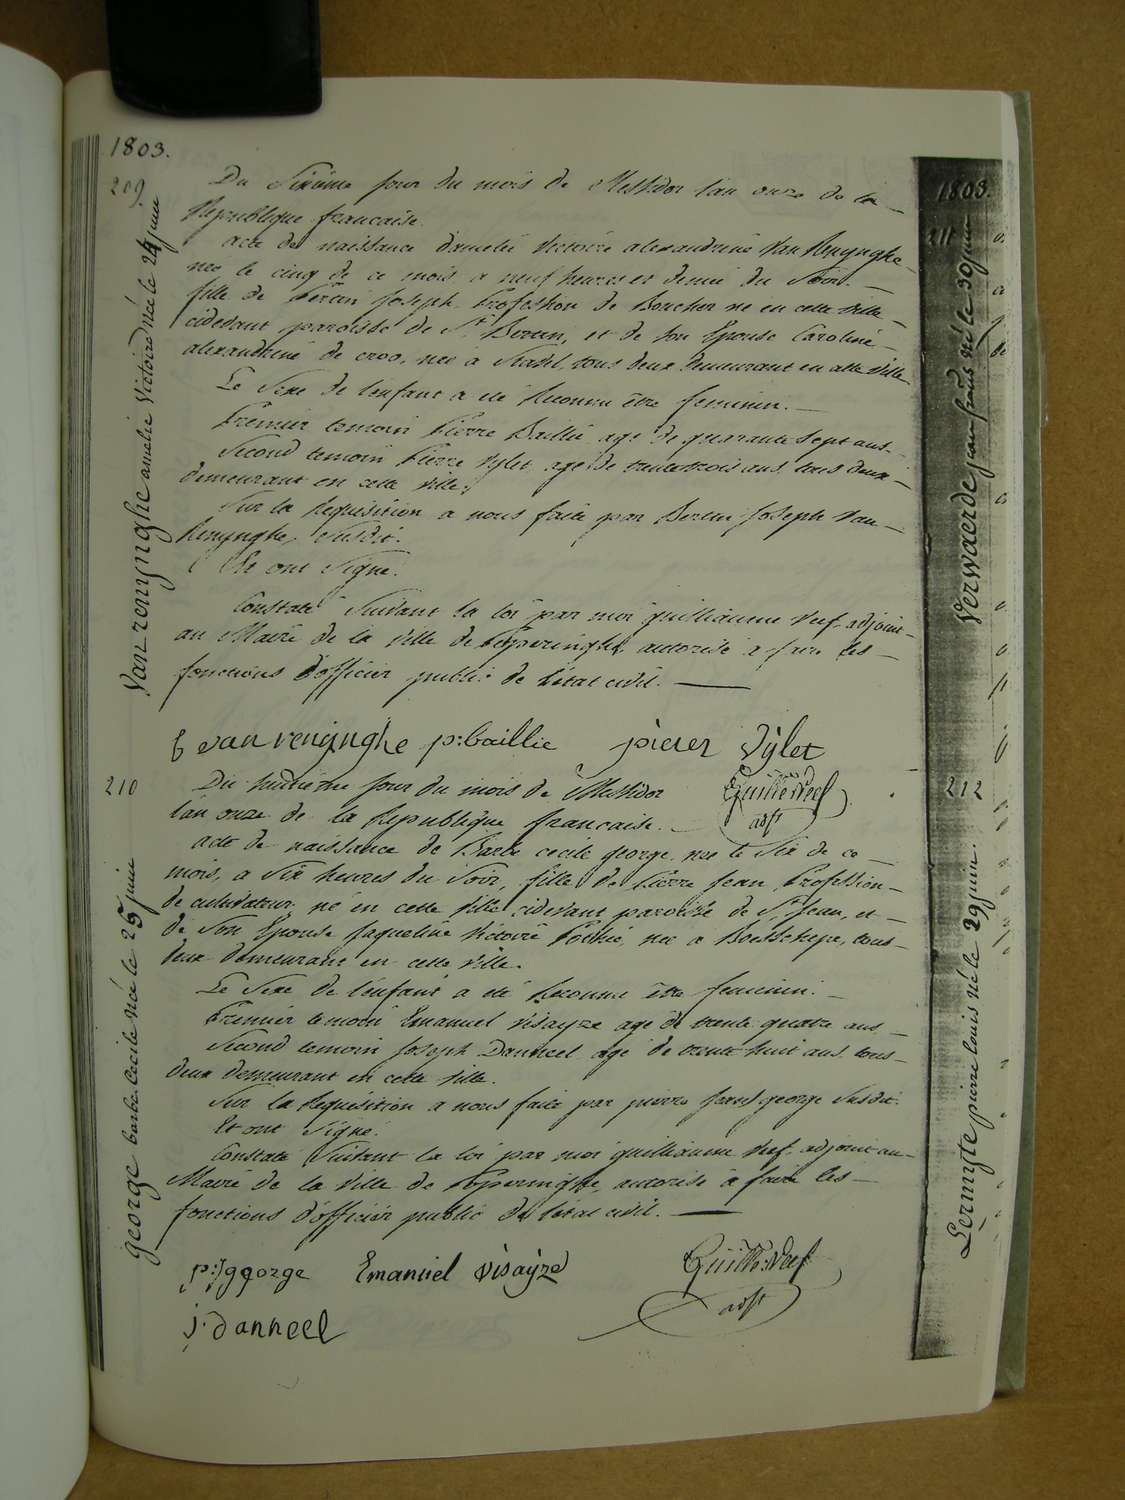 1803.
209.
Van renynghe amelie Victoire née le 24 juin
Du Sixième jour du mois de Messidor l'an onze de la
République francaise.
acte de naissance d'amelie Victoire alexandrine Van Renynghe
née le cinq de ce mois a neuf heures et demie du Soir.
fille de Bertin Joseph Profession de Boucher né en cette ville
cidevant paroisse de St Bertin, et de Son Epouse Caroline
alexandrine de croo, née a Stavel, tous deux demeurant en cette Ville
Le Sexe de l'enfant a été Reconnu être feminin.
Premier temoin Pierre Baillie agé de quarante Sept ans.
Second temoin Pierre Vylet agé de trente trois ans tous deux
demeurant en cette ville.
Sur la Requisition a nous faite par Bertin Joseph Van
Renynghe, Susdit.
Et ont Signé.
Constaté Suivant la loi par moi guilliaume Vref adjoint
au Maire de la ville de Poperinghe autorisé a faire les
fonctions d'officier public de l'état civil.
b van renynghe p:baillie pieter Vÿlet
Guille Vref
adjt
210
george barbe Cecile née le 25 juin
Du huitieme jour du mois de Messidor
l'an onze de la Republique francaise.
acte de naissance de Barbe cecile george, née le Six de ce
mois, a Six heures du Soir, fille de Pierre Jean Profession
de cultivateur né en cette Ville cidevant paroisse de St Jean, et
de Son Epouse Jaqueline Victoire née a Boesschepe, tous
deux demeurant en cette ville.
Le Sexe de l'enfant a été Reconnu être feminin.
Premier temoin Emanuel Visayze agé de trente quatre ans
Second temoin Joseph Danneel agé de trente huit ans tous
deux demeurant en cette ville.
Sur la Requisition a nous faite par pierre jean george Susdit.
Et ont Signé.
Constaté Suivant la loi par moi guilliaume Vref adjoint au
Maire de la Ville de Poperinghe, autorisé à faire les
fonctions d'officier public de l'état civil.
p:j george Emanuel visaÿze
Guille Vref
adjt
j. danneel
1803.
211
Verwaerde jean frans né le 30 juin
212
Lermyte pierre louis né le 29 juin.